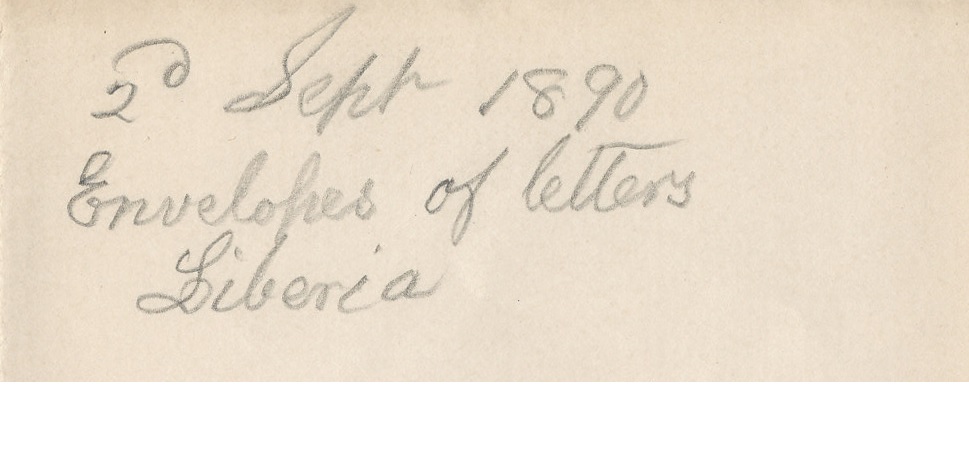 2d Sept 1890
Envelopes of letters
Liberia